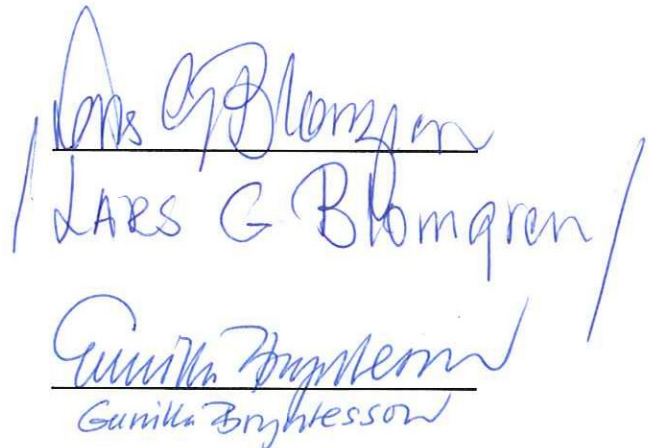 Lars G Blomgren
/ LARS G Blomgren /
Gunilla Bryntesson
Gunilla Bryntesson